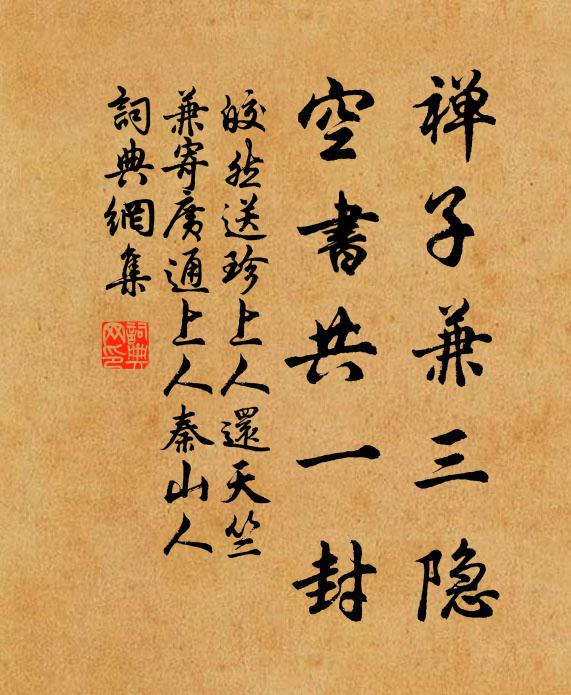 禅子兼三隐
空書共一封
皎然送珍上人還天竺
兼寄廣通上人秦山人
詞典網集
詞典网印